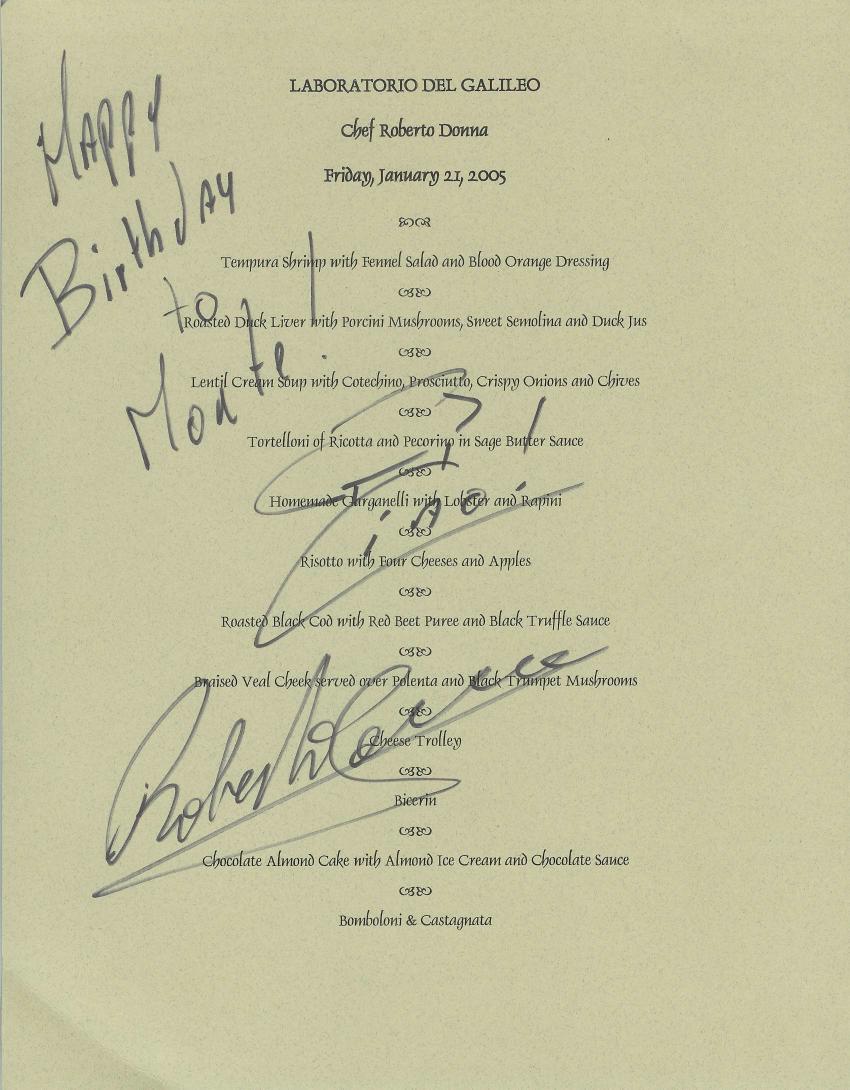 LABORATORIO DEL GALILEO
Chef Roberto Donna
Friday, January 21, 2005
Happy
Birthday
to
Monte!
Tempura Shrimp with Fennel Salad and Blood Orange Dressing
Roasted Duck Liver with Porcini Mushrooms, Sweet Semolina and Duck Jus
Lentil Cream Soup with Cotechino, Prosciutto, Crispy Onions and Chives
Tortelloni of Ricotta and Pecorino in Sage Butter Sauce
Homemade Garganelli with Lobster and Rapini
Ciao!
Risotto with Four Cheeses and Apples
Roasted Black Cod with Red Beet Puree and Black Truffle Sauce
Braised Veal Cheek served over Polenta and Black Trumpet Mushrooms
Roberto Donna
Cheese Trolley
Bicerin
Chocolate Almond Cake with Almond Ice Cream and Chocolate Sauce
Bomboloni & Castagnata